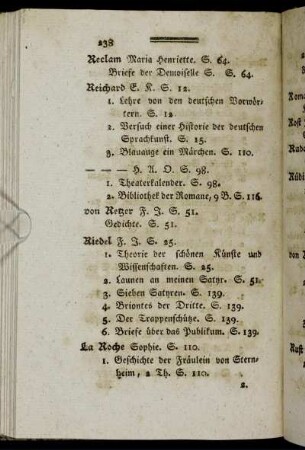 238
Reclam Maria Henriette. S. 64.
Briefe der Demoiselle S. S. 64.
Reichard E. K. S. 12.
1. Lehre von den deutschen Vorwör-
tern. S. 12
2. Versuch einer Historie der deutschen
Sprachkunst. S. 15.
3. Blauauge ein Märchen. S. 110.
— — — H. A. O. S. 98.
1. Theaterkalender. S. 98.
2. Bibliothek der Romane, 9 B. S. 116.
von Retzer F. J. S. 51.
Gedichte. S. 51.
Riedel F. J. S. 25.
1. Theorie der schönen Künste und
Wissenschaften. S. 25.
2. Launen an meinen Satyr. S. 51.
3. Sieben Satyren. S. 139.
4. Briontes der Dritte. S. 139.
5. Der Trappenschütze. S. 139.
6. Briefe über das Publikum. S. 139.
La Roche Sophie. S. 110.
1. Geschichte der Fräulein von Stern-
heim, 2 Th. S. 110.
2.